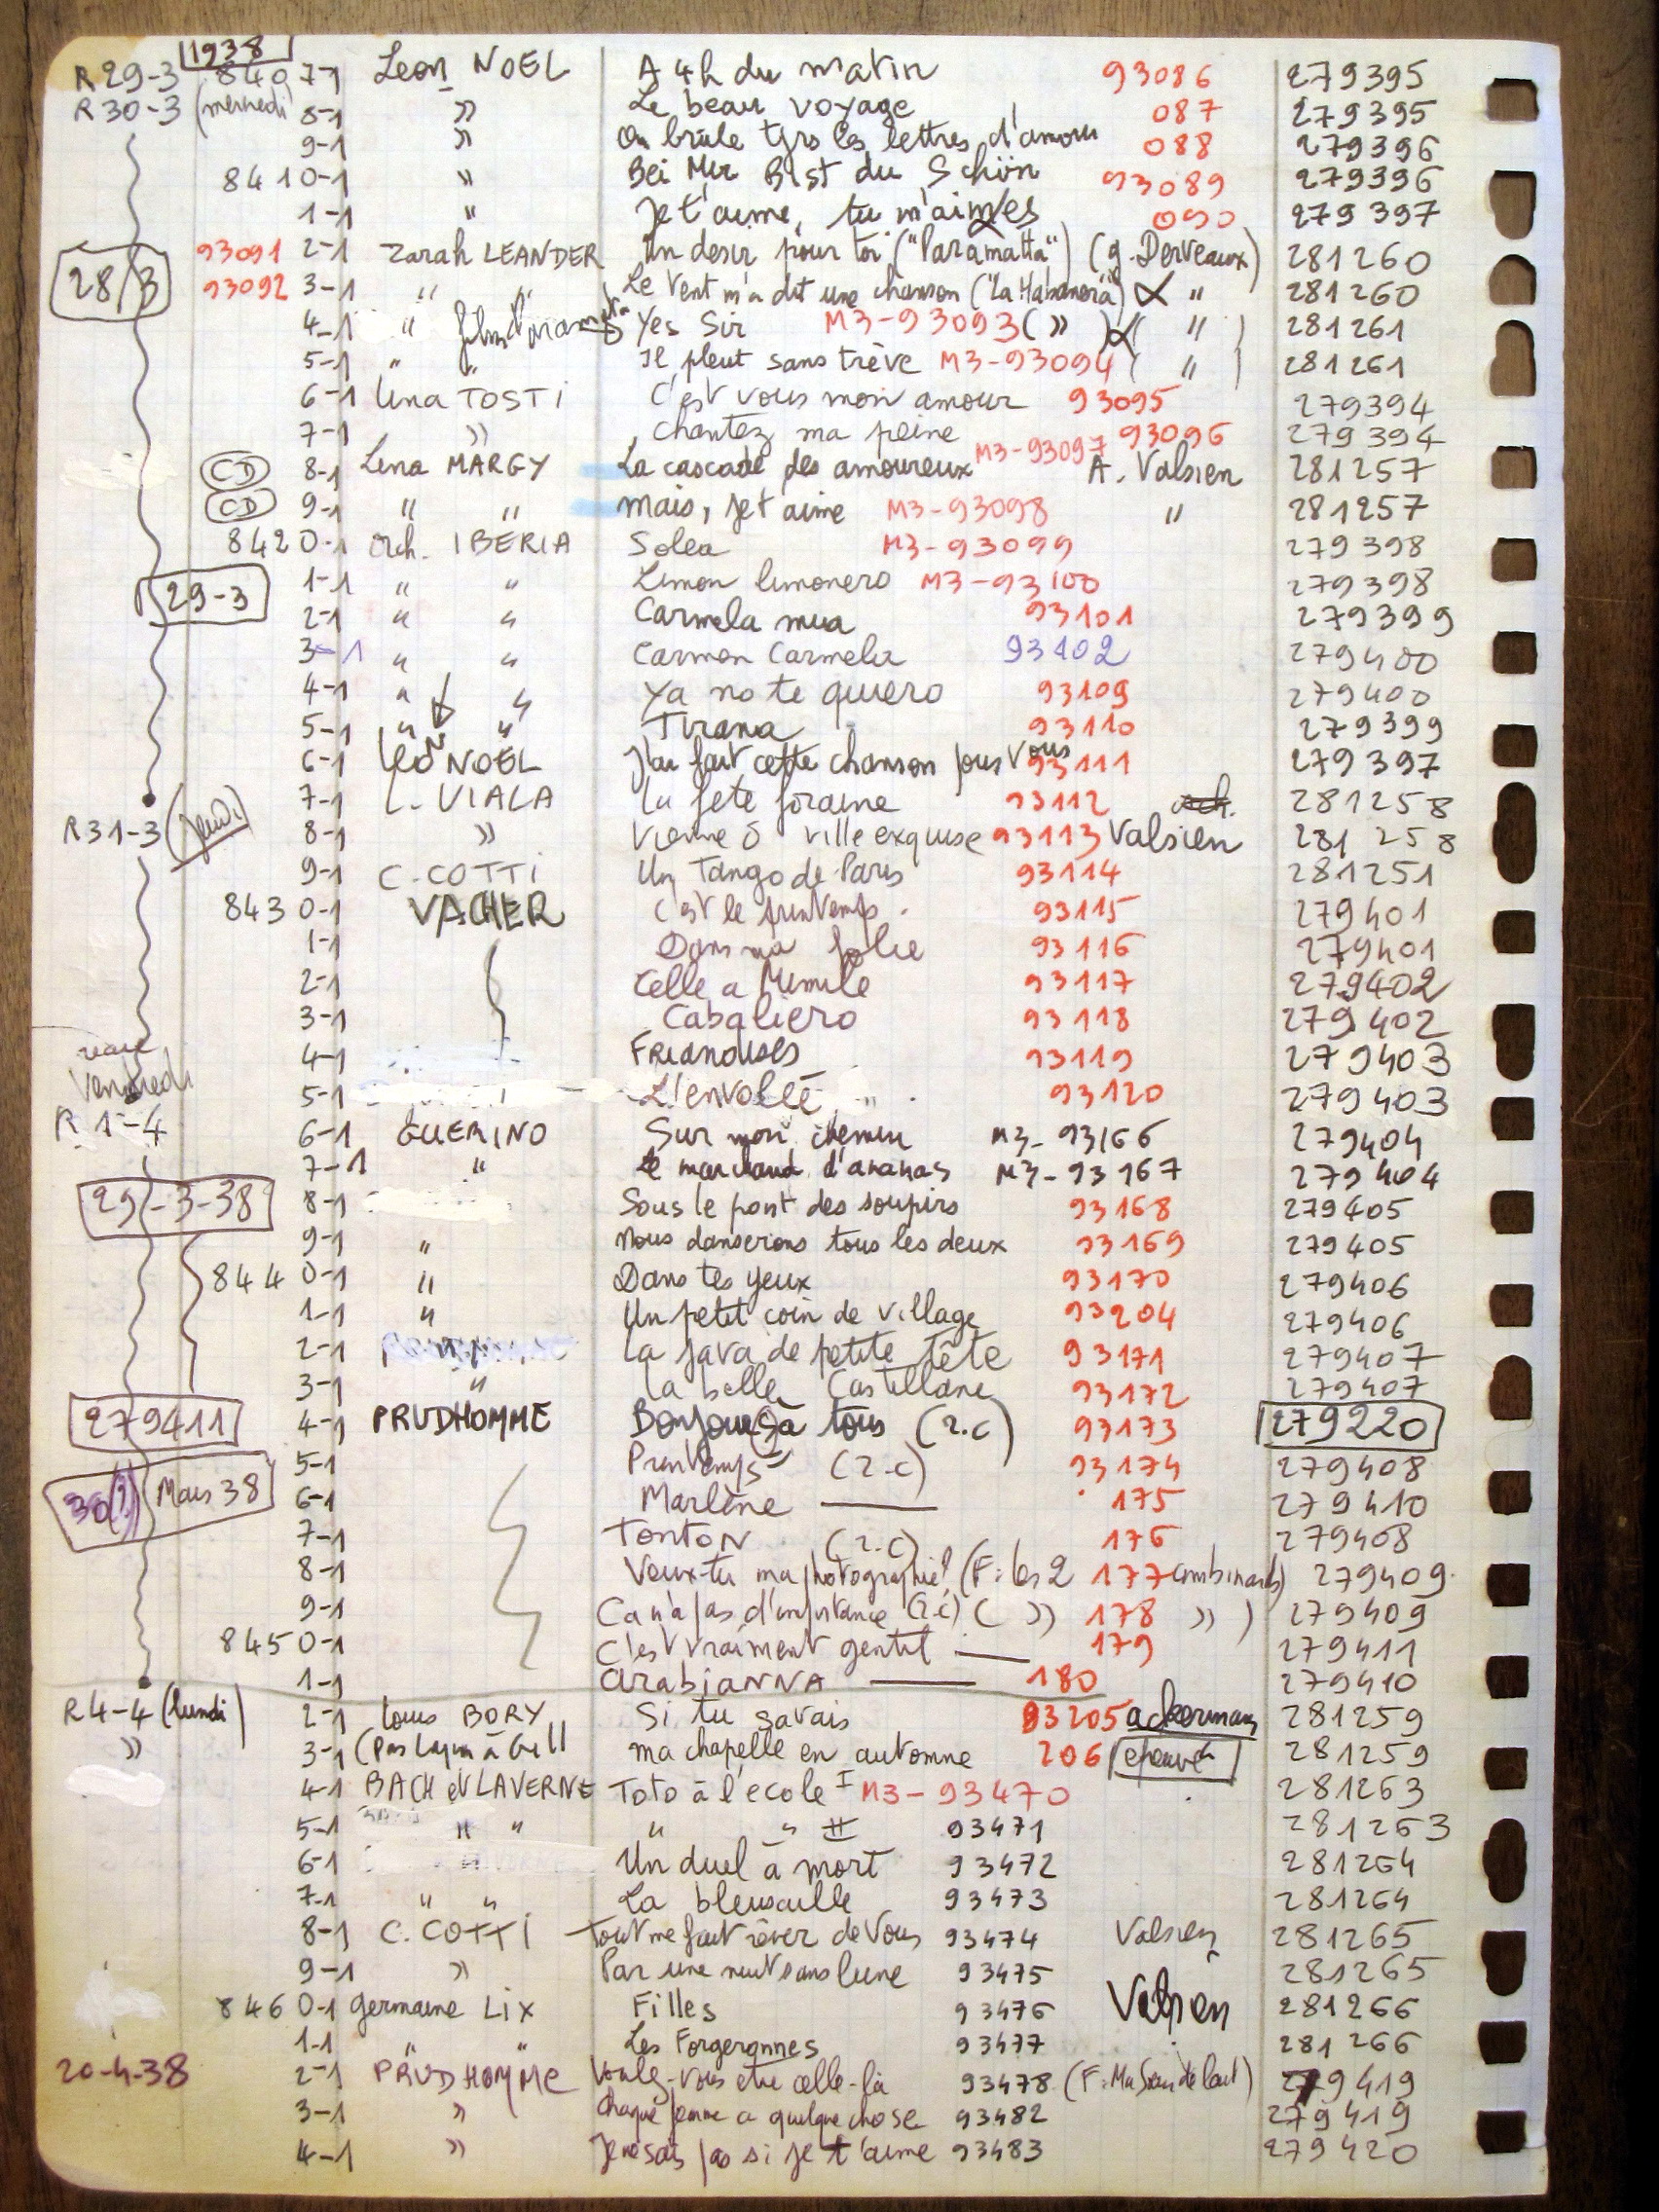 1938
R 29-3 840 7-1 Leon NOEL A 4h du matin 93086 279395
R 30-3 (mercredi) 8-1 » Le beau voyage 087 279395
9-1 » On brûle tjrs les lettres d'amour 088 279396
841 0-1 » Bei Mir Bist du Schön 93089 279396
1-1 " Je t'aime, tu m'aimes 090 279397
93091 2-1 Zarah LEANDER Un desir pour toi ("Paramatta") (g. Derveaux) 281260
28/3 93092 3-1 " " Le Vent m'a dit une chanson ("La Habanera") " 281260
4-1 " film Yes Sir M3-93093 (») ( " ) 281261
5-1 " " Il pleut sans trève M3-93094 ( " ) 281261
6-1 Lina TOSTI C'est vous mon amour 93095 279394
7-1 » Chantez ma peine 93096 279394
CD 8-1 Lena MARGY La cascade des amoureux M3-93097 A. Valsien 281257
CD 9-1 " " Mais, je t'aime M3-93098 " 281257
842 0-1 Orch. IBERIA Solea M3-93099 279398
29-3 1-1 " " Limon limonero M3-93100 279398
2-1 " " Carmela mia 93101 279399
3-1 " " Carmen Carmela 93102 279400
4-1 " " Ya no te quiero 93109 279400
5-1 " " Tirana 93110 279399
6-1 Léon NOEL J'ai fait cette chanson pour vous 93111 279397
7-1 L. VIALA La fete foraine 93112 orch. 281258
R 31-3 (jeudi) 8-1 » Vienne ô ville exquise 93113 Valsien 281258
9-1 C. COTTI Un Tango de Paris 93114 281251
843 0-1 VACHER C'est le printemps. 93115 279401
1-1 Dans ma folie 93116 279401
2-1 Celle a Mimile 93117 279402
3-1 Cabaliero 93118 279402
4-1 FRIANDISES 93119 279403
Vendredi 5-1 L'envolée 93120 279403
R 1-4 6-1 GUERINO Sur mon chemin M3-93166 279404
7-1 " Le marchand d'ananas M3-93167 279404
29-3-38 8-1 Sous le pont des soupirs 93168 279405
9-1 " Nous danserions tous les deux 93169 279405
844 0-1 " Dans tes yeux 93170 279406
1-1 " Un petit coin de village 93204 279406
2-1 La java de petite tête 93171 279407
3-1 " La belle Castillane 93172 279407
279411 4-1 PRUDHOMME Bonjour à tous (r.c) 93173 279220
5-1 Printemps (r.c) 93174 279408
30(?) Mars 38 6-1 Marlène 175 279410
7-1 TONTON (r.c) 176 279408
8-1 Veux-tu ma photographie? (F: les 2 177 combinards) 279409
9-1 Ca n'a pas d'importance (r.c) ( » 178 » ) 279409
845 0-1 C'est vraiment gentil 179 279411
1-1 arabiANNA 180 279410
R 4-4 (lundi) 2-1 Louis BORY Si tu savais 93205 ackermans 281259
» 3-1 (Pas Layın à Gill ma chapelle en automne 206 epreuve 281259
4-1 BACH et LAVERNE Toto à l'école I M3-93470 281263
5-1 " " " " II 93471 281263
6-1 Un duel à mort 93472 281264
7-1 " " La bleusaille 93473 281264
8-1 C. COTTI Tout me fait rêver de Vous 93474 Valsien 281265
9-1 » Par une nuit sans lune 93475 281265
846 0-1 germaine LIX Filles 93476 Valsien 281266
1-1 " " Les Forgeronnes 93477 281266
20-4-38 2-1 PRUDHOMME Voulez-vous etre celle-là 93478 (F: Ma Soeur de lait) 279419
3-1 » Chaque femme a quelque chose 93482 279419
4-1 » Je ne sais pas si je t'aime 93483 279420